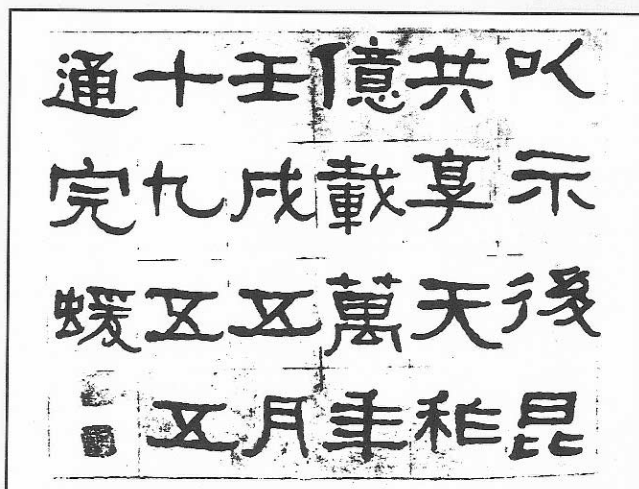 以示後昆
共享天祚
億載萬年
壬戌五月
十九五五
通完蝯